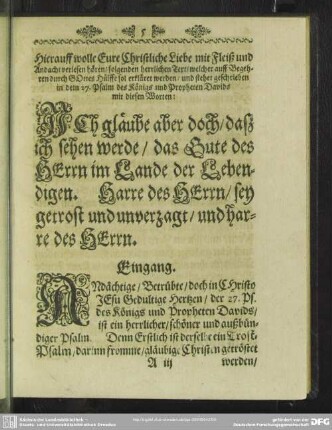 5
Hierauff wolle Eure Christliche Liebe mit Fleiß und
Andacht verlesen hören/ folgenden herrlichen Text/ welcher auff Begeh-
ren durch GOttes Hülffe sol erkläret werden/ und stehet geschrieben
in dem 27. Psalm des Königs und Propheten Davids
mit diesen Worten:
ICh gläube aber doch/ daß
ich sehen werde/ das Gute des
HErrn im Lande der Leben-
digen. Harre des HErrn/ sey
getrost und unverzagt/ und har-
re des HErrn.
Eingang.
ANdächtige/ Betrübte/ doch in CHristo
JEsu Gedultige Hertzen/ der 27. Ps.
des Königs und Propheten Davids/
ist ein herrlicher/ schöner und außbün-
diger Psalm. Denn Erstlich ist derselbe ein Trost-
Psalm/ darinn fromme/ gläubige Christen getröstet
A iij werden/